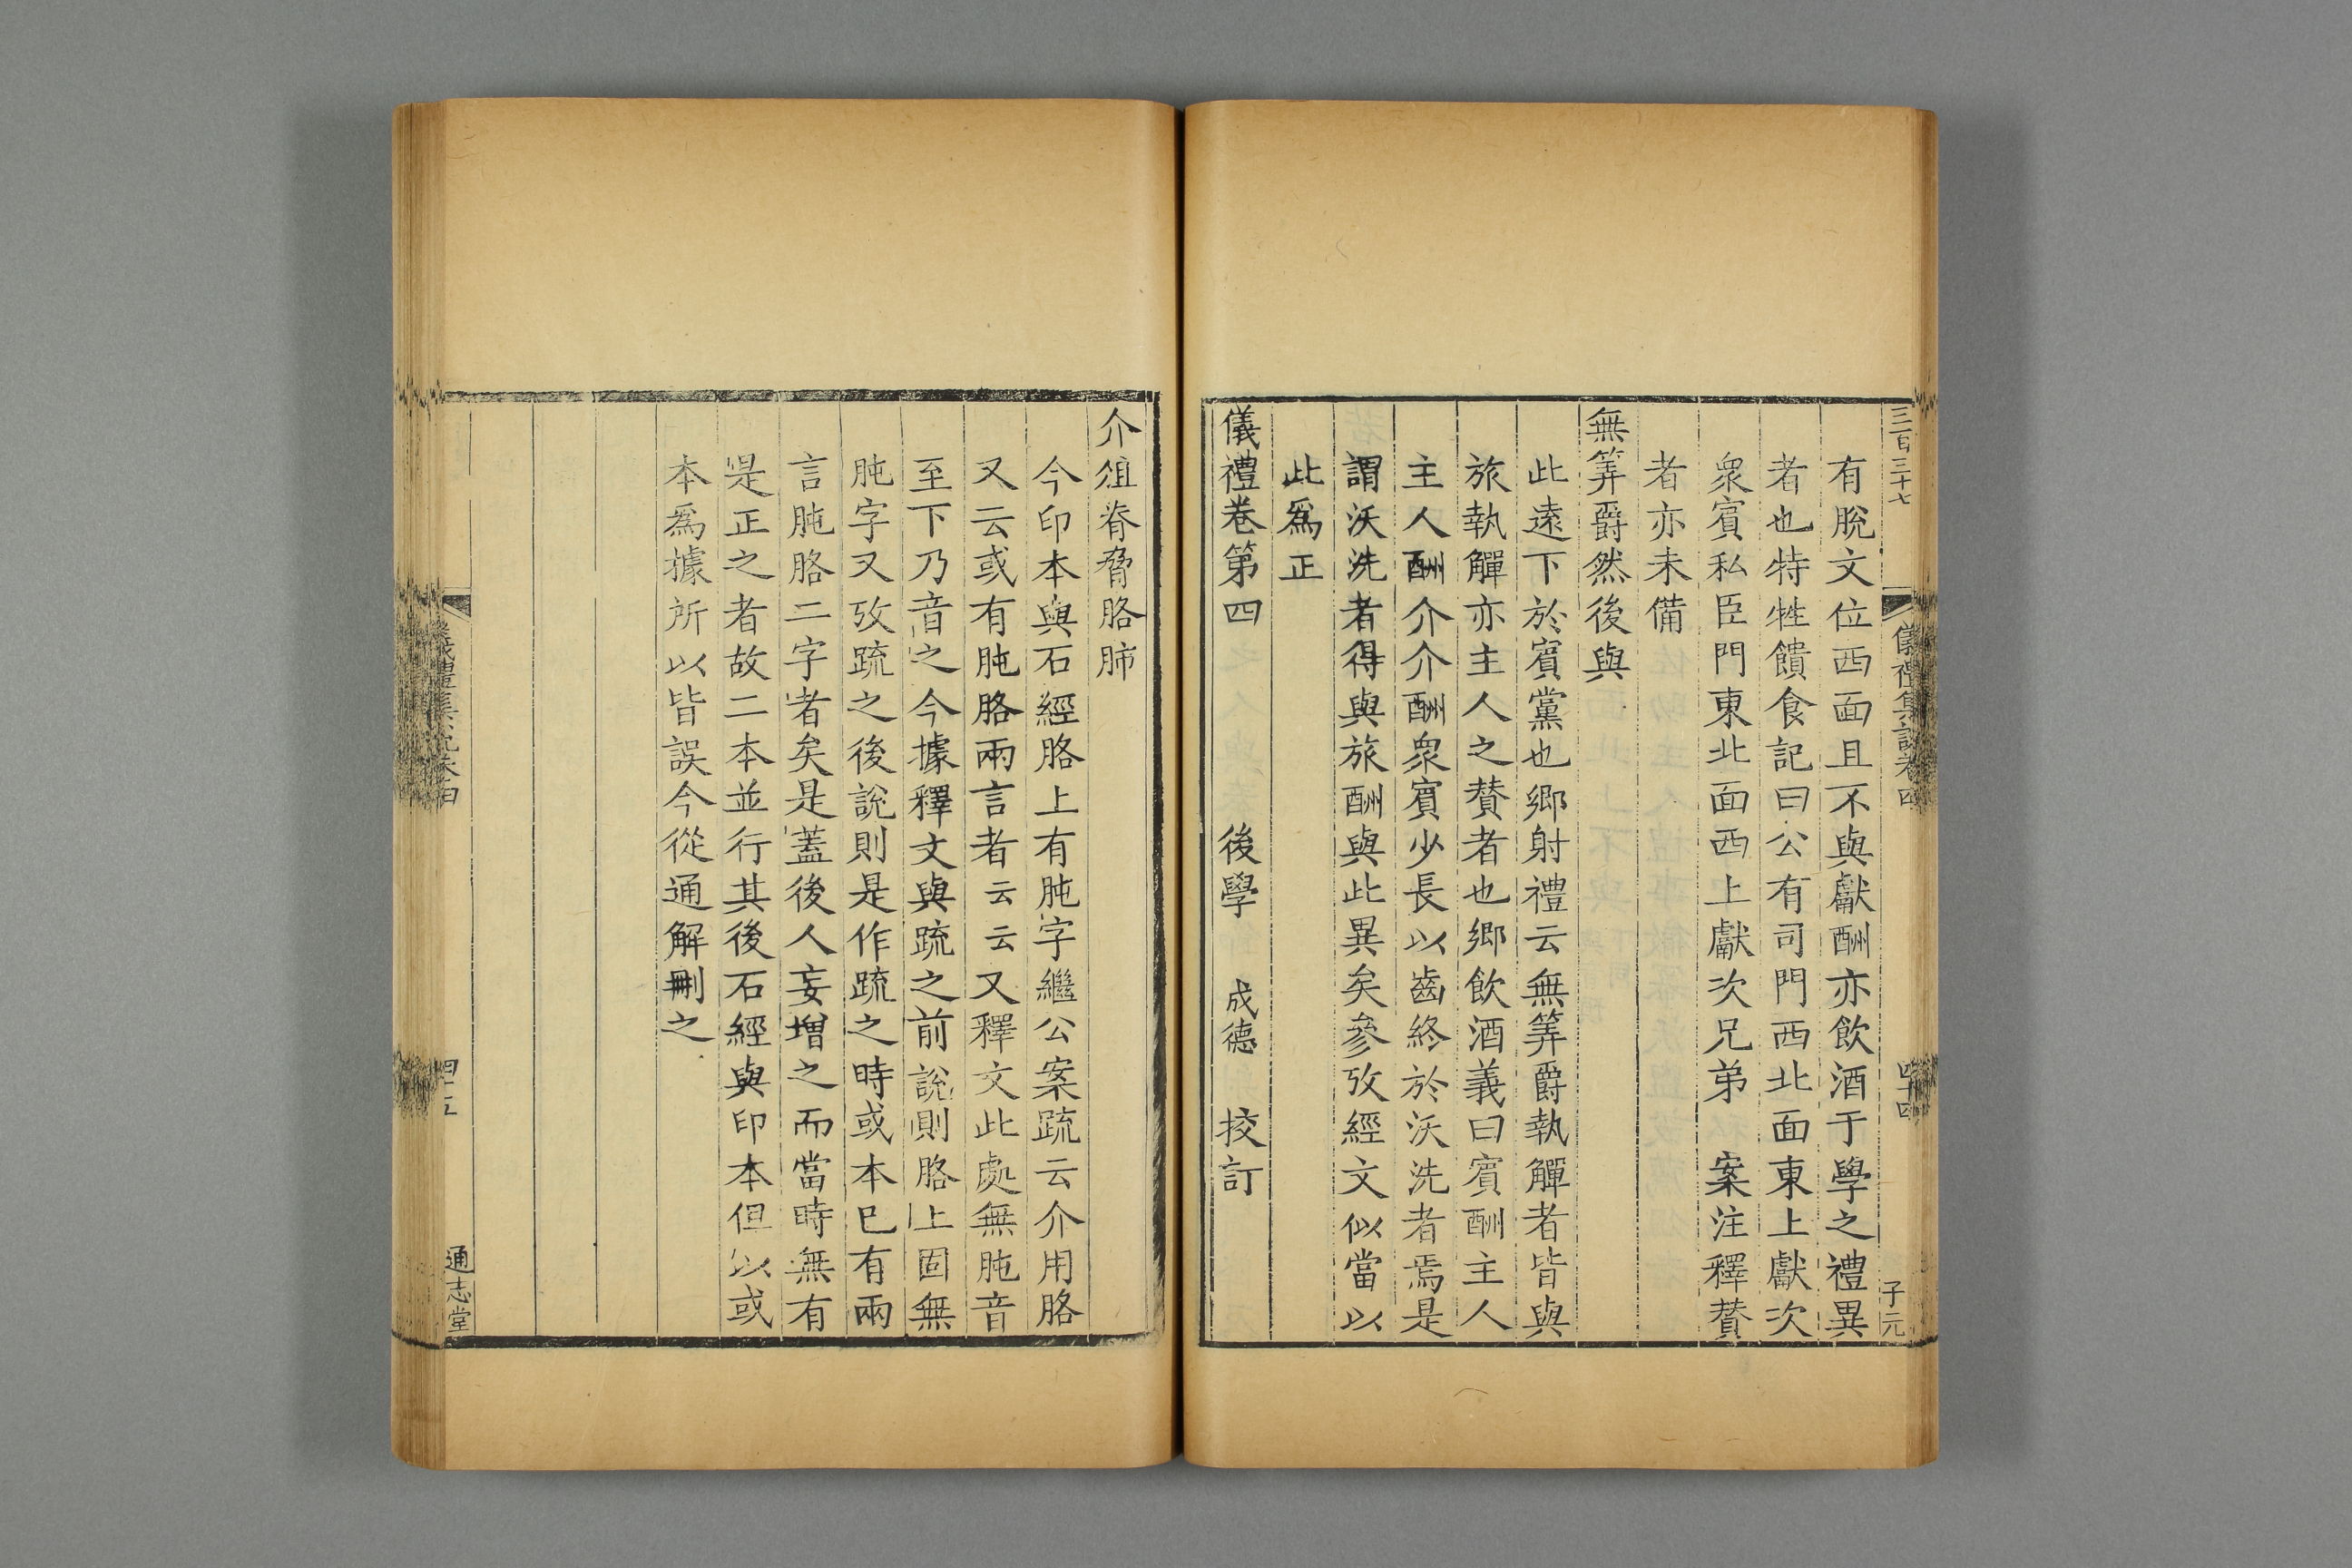 三百三十七
儀禮集說卷四
四十四
子元
有脫文位西面且不與獻酬亦飲酒于學之禮異
者也特牲饋食記曰公有司門西北面東上獻次
眾賓私臣門東北面西上獻次兄弟　案注釋贊
者亦未備
無筭爵然後與
此遠下於賓黨也鄉射禮云無筭爵執觶者皆與
旅執觶亦主人之贊者也鄉飲酒義曰賓酬主人
主人酬介介酬眾賓少長以齒終於沃洗者焉是
謂沃洗者得與旅酬與此異矣參攷經文似當以
此為正
儀禮卷第四　後學　成德　挍訂
介俎脊脅胳肺
今印本與石經胳上有肫字繼公案疏云介用胳
又云或有肫胳兩言者云云又釋文此處無肫音
至下乃音之今據釋文與疏之前說則胳上固無
肫字又攷疏之後說則是作疏之時或本已有兩
言肫胳二字者矣是蓋後人妄增之而當時無有
是正之者故二本並行其後石經與印本但以或
本為據所以皆誤今從通解刪之
通志堂